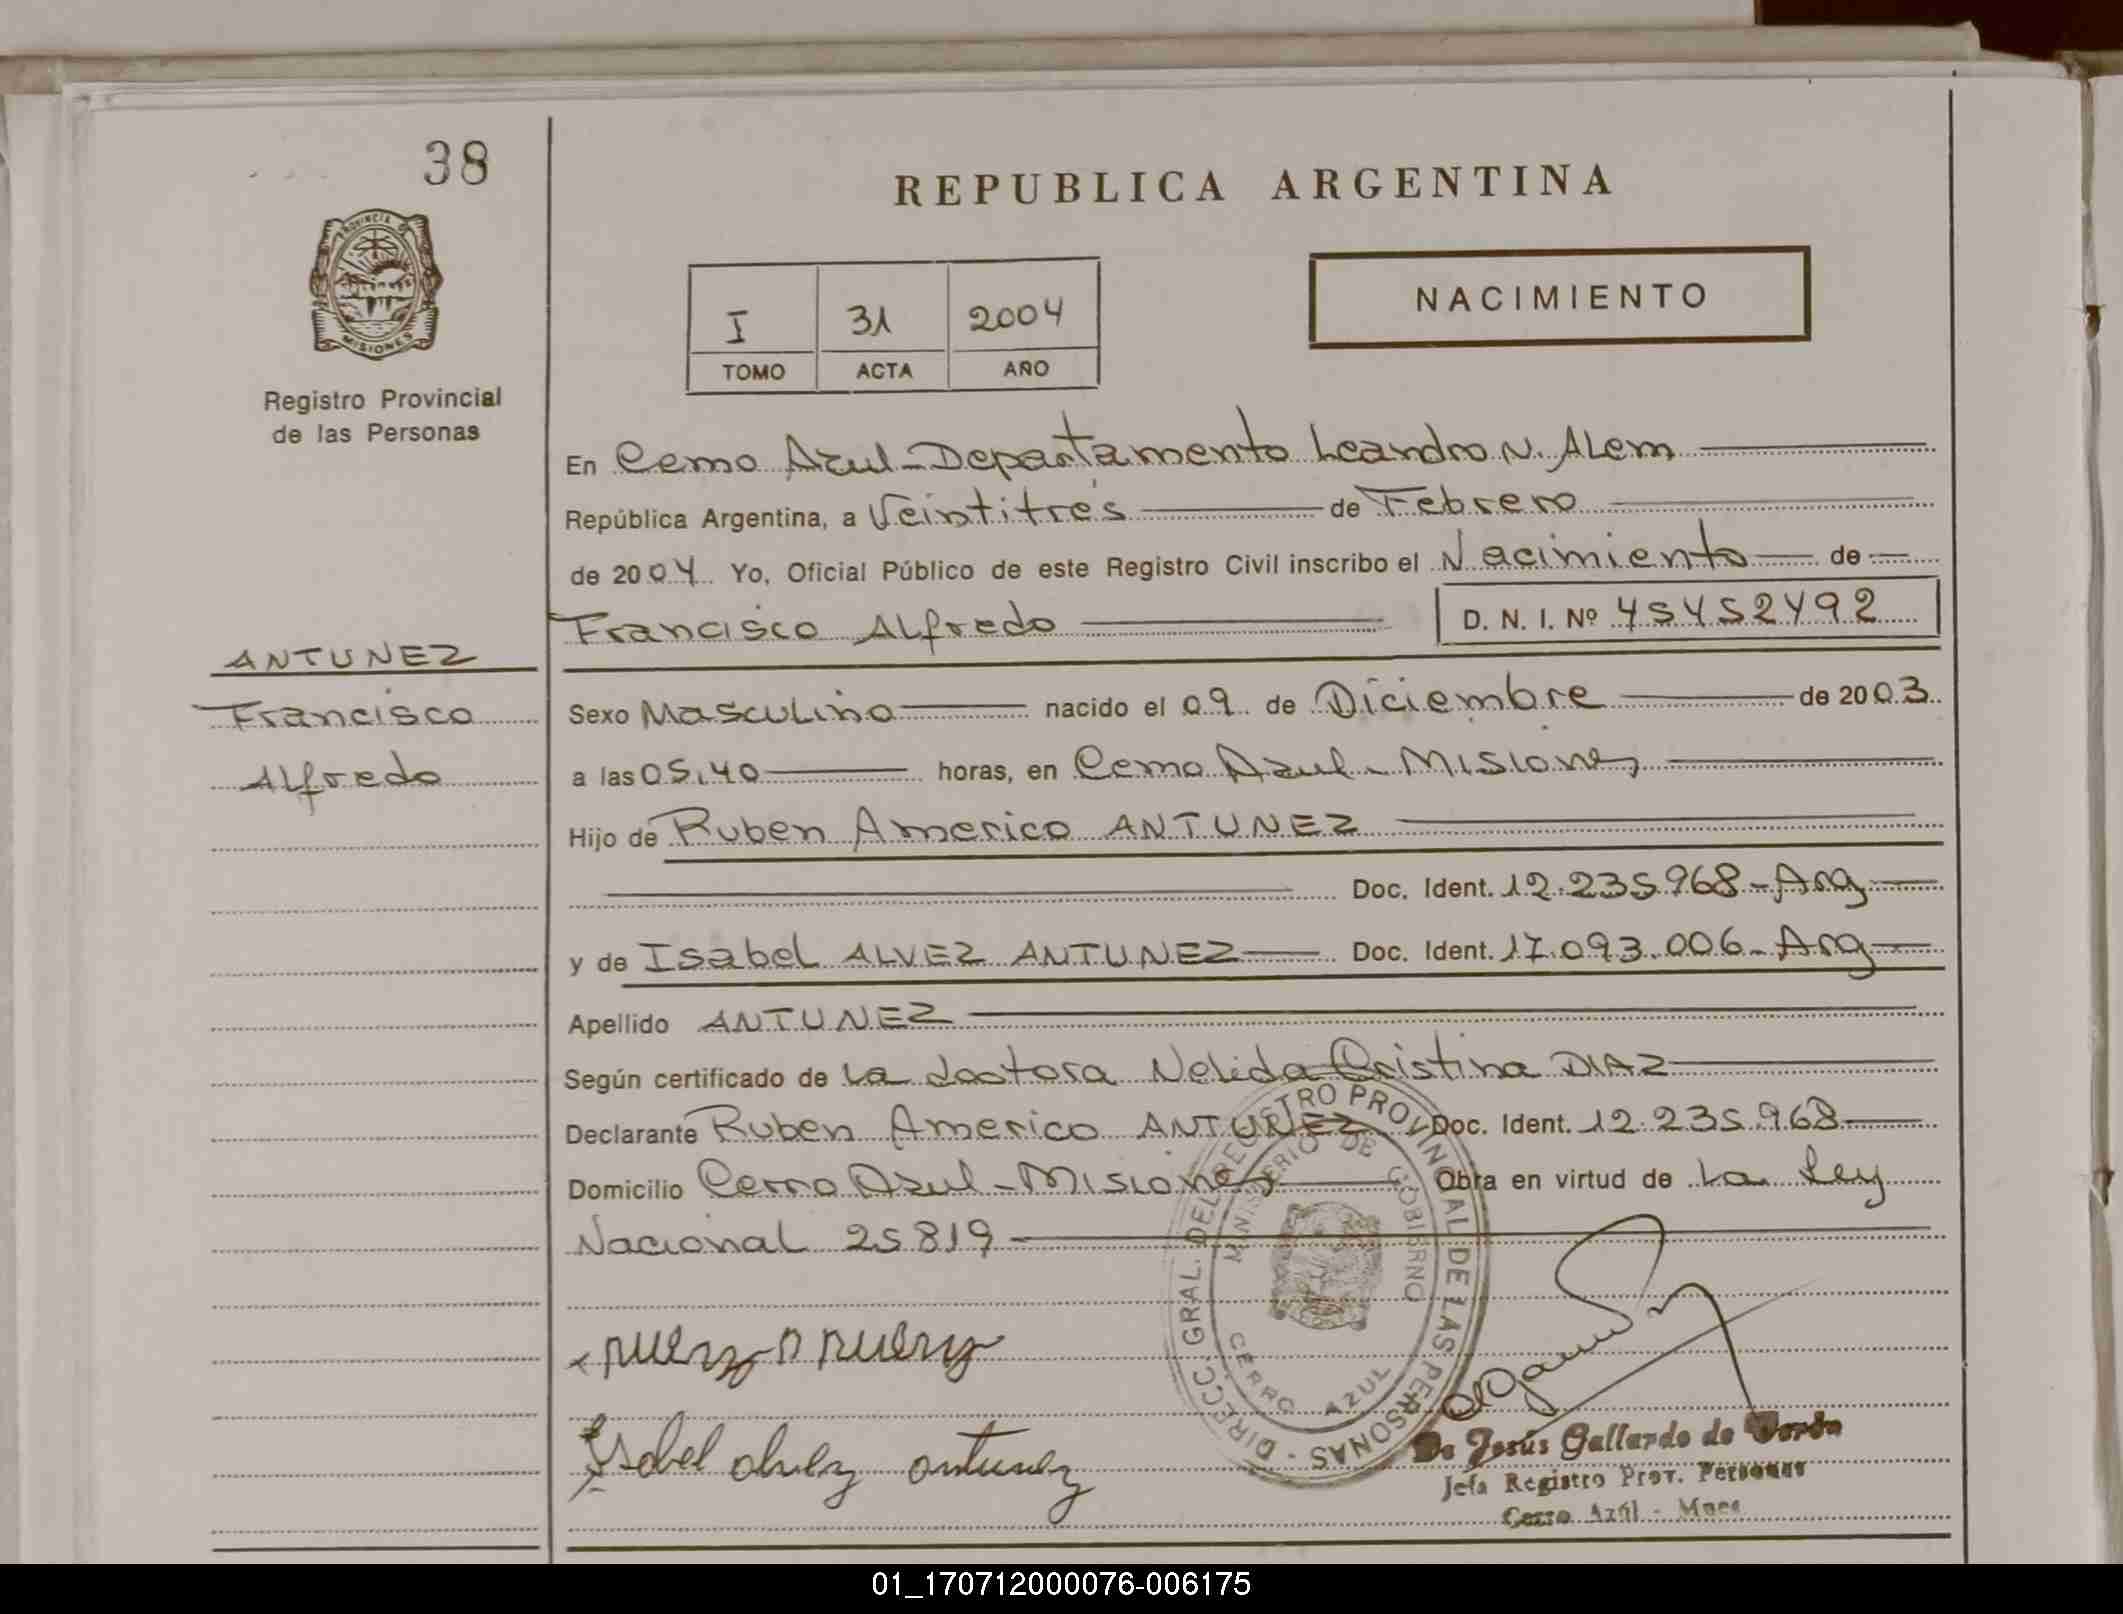 38
REPUBLICA ARGENTINA
PROVINCIA DE
MISIONES
Registro Provincial
de las Personas
I 31 2004
TOMO ACTA AÑO
NACIMIENTO
En Cerro Azul - Departamento Leandro N. Alem
República Argentina, a Veintitrés de Febrero
de 2004 Yo, Oficial Público de este Registro Civil inscribo el Nacimiento de
Francisco Alfredo D. N. I. Nº 45452492
ANTUNEZ
Francisco
Alfredo
Sexo Masculino nacido el 09 de Diciembre de 2003
a las 05,40 horas, en Cerro Azul - Misiones
Hijo de Ruben Americo ANTUNEZ
Doc. Ident. 12.235.968 - Arg
y de Isabel ALVEZ ANTUNEZ Doc. Ident. 17.093.006 - Arg
Apellido ANTUNEZ
Según certificado de La doctora Nelida Cristina DIAZ
Declarante Ruben Americo ANTUNEZ Doc. Ident. 12.235.968
Domicilio Cerro Azul - Misiones Obra en virtud de La Ley
Nacional 25819
DIRECC. GRAL. DEL REGISTRO PROVINCIAL DE LAS PERSONAS
MINISTERIO DE GOBIERNO
CERRO AZUL
Isabel alvez antunez
De Jesús Gallardo de
Jefa Registro Prov. Personas
Cerro Azúl - Mnes
01_170712000076-006175